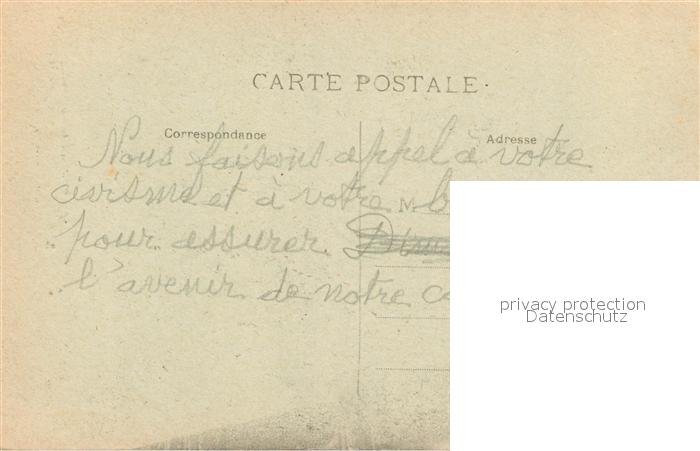 CARTE POSTALE
Correspondance
Adresse
Nous faisons appel à votre
civisme et à votre
M
pour assurer
l'avenir de notre
privacy protection
Datenschutz